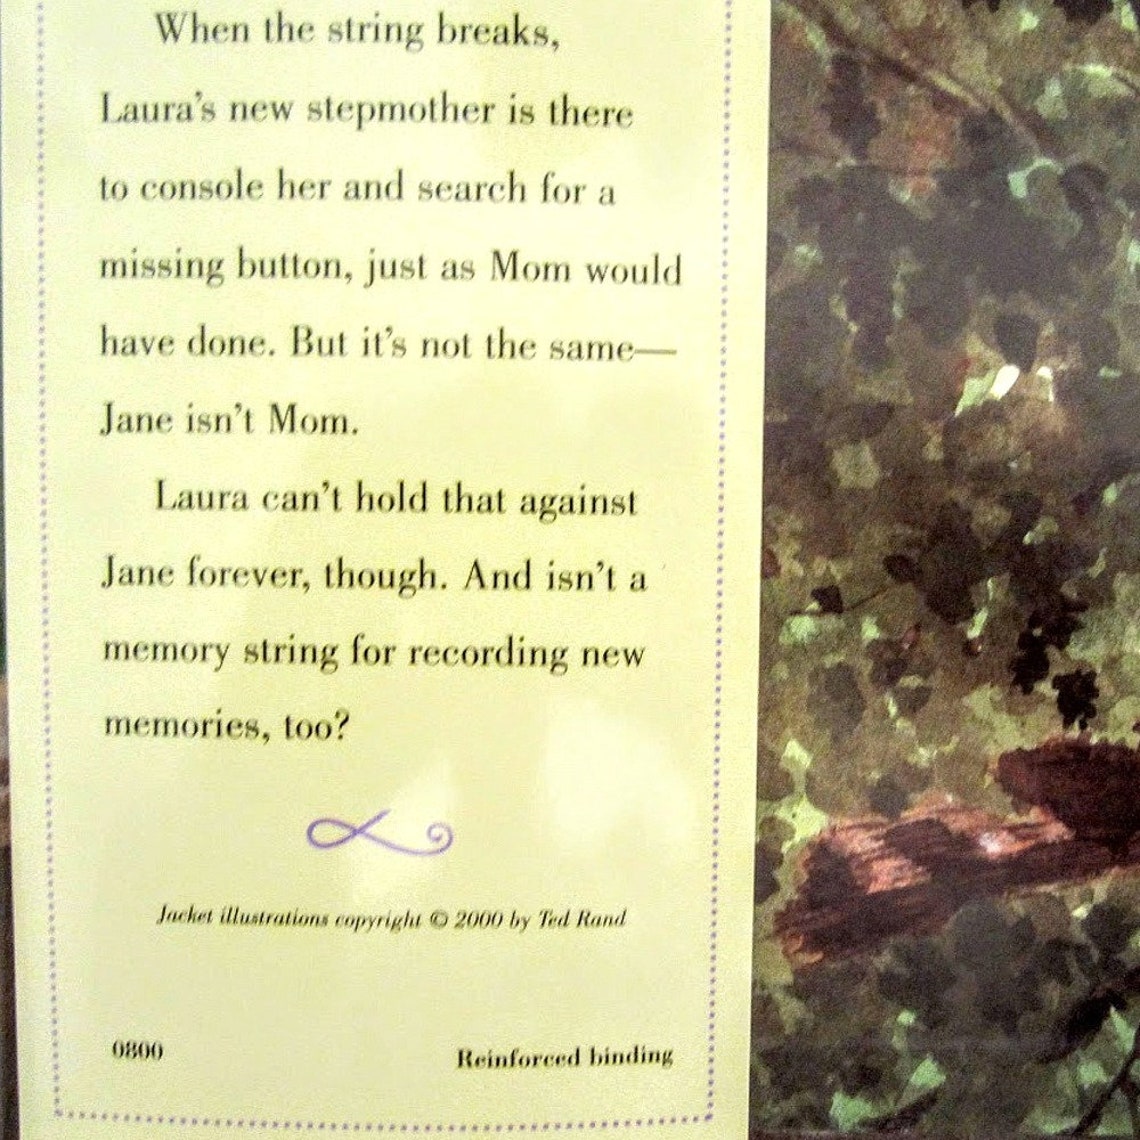 When the string breaks,
Laura's new stepmother is there
to console her and search for a
missing button, just as Mom would
have done. But it's not the same—
Jane isn't Mom.
Laura can't hold that against
Jane forever, though. And isn't a
memory string for recording new
memories, too?
Jacket illustrations copyright © 2000 by Ted Rand
0800
Reinforced binding